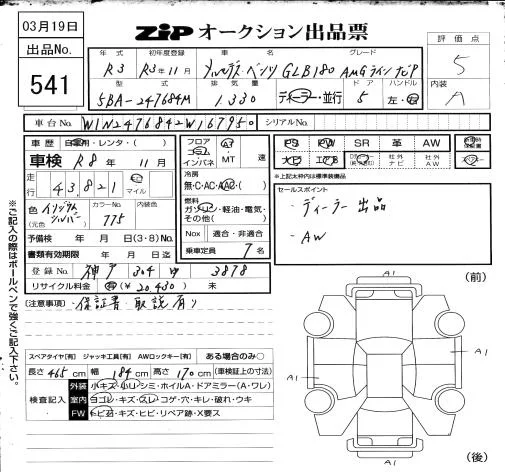 03月19日
出品No.
541
ZiP オークション出品票
年式 初年度登録 車名 グレード
R3 R3年11月 メルセデス・ベンツ GLB180 AMGラインナビP
型式 排気量 ドア ハンドル
5BA-247684M 1.330 ディーラー・並行 5 左・右
評価点
5
内装
A
車台No. W1N2476842W167950
シリアルNo.
車歴 自家用・レンタ・( )
車検 R8年 11月
走行 43,821 km マイル
色(元色) イリジウムシルバー カラーNo. 775 内装色
予備検 年 月 日(3・8)No.
書類有効期限 年 月 日迄
登録No. 神戸 304 3878
リサイクル料金 ¥20.430 未
フロア コラム インパネ A3 MT 速
冷房 無・C・AC・AAC・( )
燃料 ガソリン・軽油・電気・その他( )
Nox 適合・非適合
乗車定員 7名
PS PW SR 革 AW
ナビ エアB 社外ナビ 社外AW
*上記太枠内は標準装備品
セールスポイント
・ディーラー出品
・AW
[注意事項]・保証書 取説 有り
スペアタイヤ[有] ジャッキ工具[有] AWロックキー[有] ある場合のみ○
長さ 465cm 幅 184cm 高さ 170cm (車検証上の寸法)
検査記入
外装 小キズ・小U・シミ・ホイルA・ドアミラー(A・ワレ)
室内 ヨゴレ・キズ・スレ・コゲ・穴・キレ・破れ・ウキ
FW トビ石・キズ・ヒビ・リペア跡・X要ス
※ご記入の際はボールペンで強くご記入下さい。
(前)
A1
A1
A1
A1
(後)